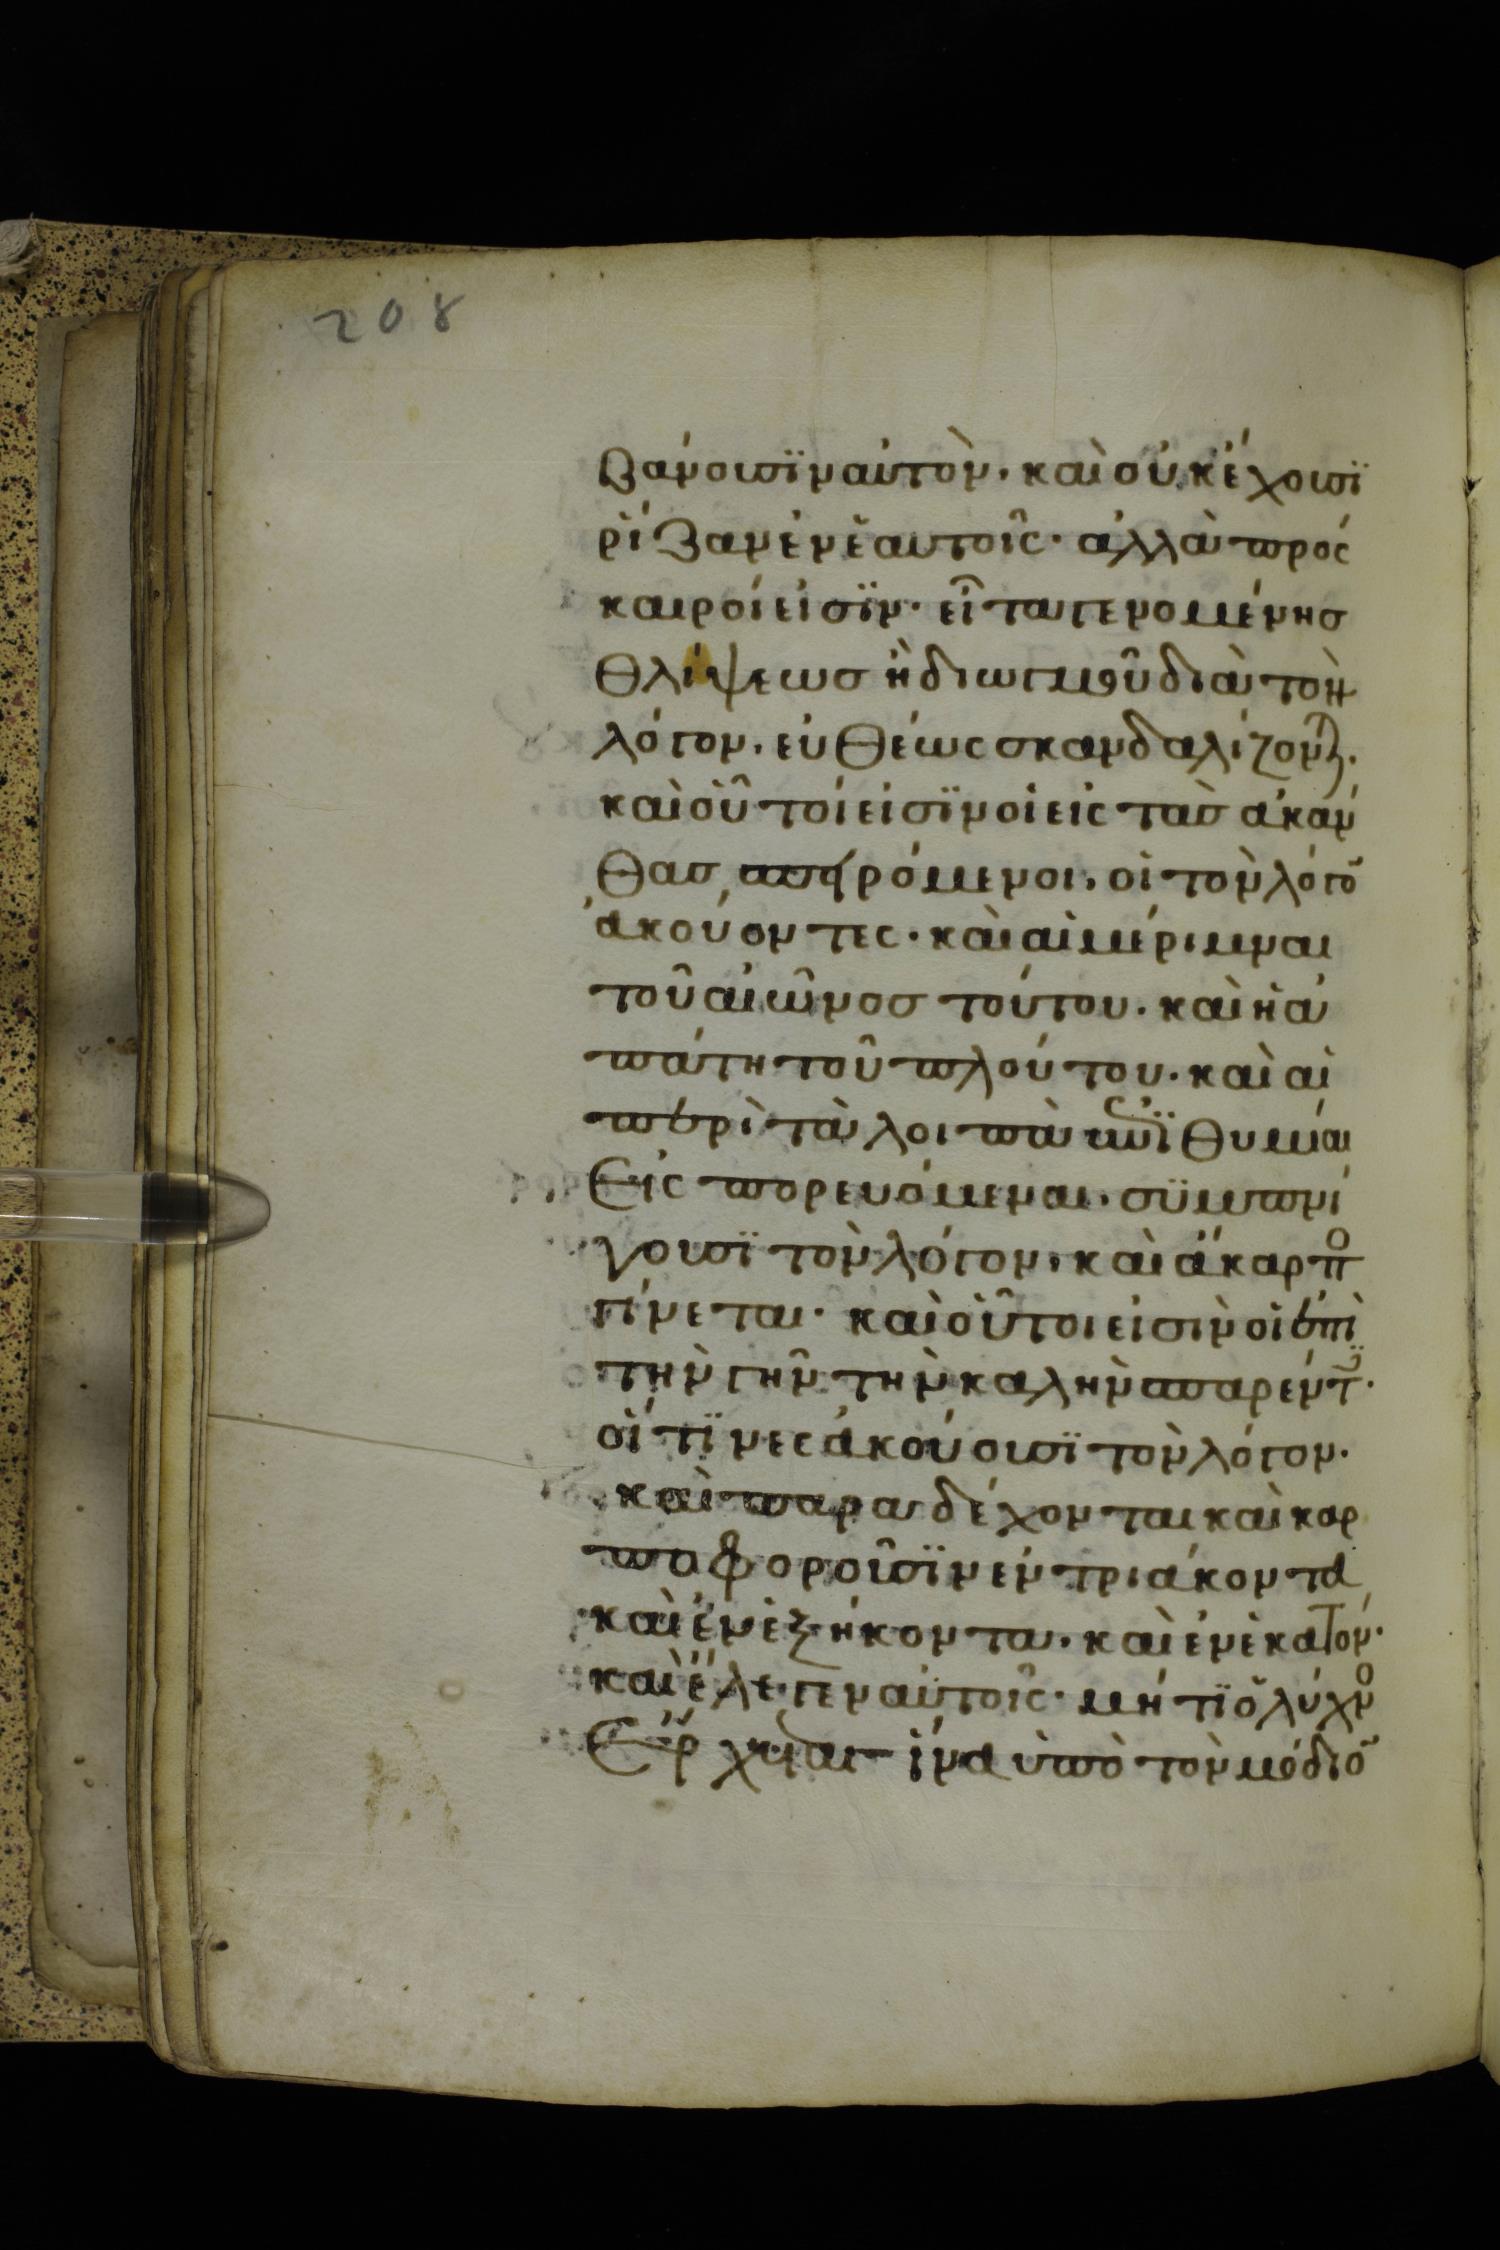 208
βάνουσϊν αὐτὸν· καὶ οὐκ ἔχουσϊ
ρίζαν ἐν ἑαυτοῖς· ἀλλὰ πρόσ
καιροί εἰσϊν· εἶτα γενομένης
θλίψεως ἢ διωγμοῦ διὰ τὸν
λόγον, εὐθέως σκανδαλίζονται.
καὶ οὗτοί εἰσϊν οἱ εἰς τὰς ἀκάν
θας σπειρόμενοι, οἱ τὸν λόγον
ἀκούοντες· καὶ αἱ μέριμναι
τοῦ αἰῶνος τούτου· καὶ ἡ ἀ
πάτη τοῦ πλούτου· καὶ αἱ
περὶ τὰ λοιπὰ ἐπϊθυμίαι
Εἰσπορευόμεναι, συμπνί
γουσϊ τὸν λόγον, καὶ ἄκαρπο
γίνεται· καὶ οὗτοι εἰσιν οἱ ἐπὶ
τὴν γῆν τὴν καλὴν σπαρέντ
οἵτϊνες ἀκούουσϊ τὸν λόγον·
καὶ παραδέχονται καὶ καρ
ποφοροῦσϊν ἐν τριάκοντα
καὶ ἐν ἑξήκοντα· καὶ ἐν ἑκατόν·
καὶ ἔλεγεν αὐτοῖς· μήτϊ ὁ λύχνο
Ἔρχεται ἵνα ὑπὸ τὸν μόδιον